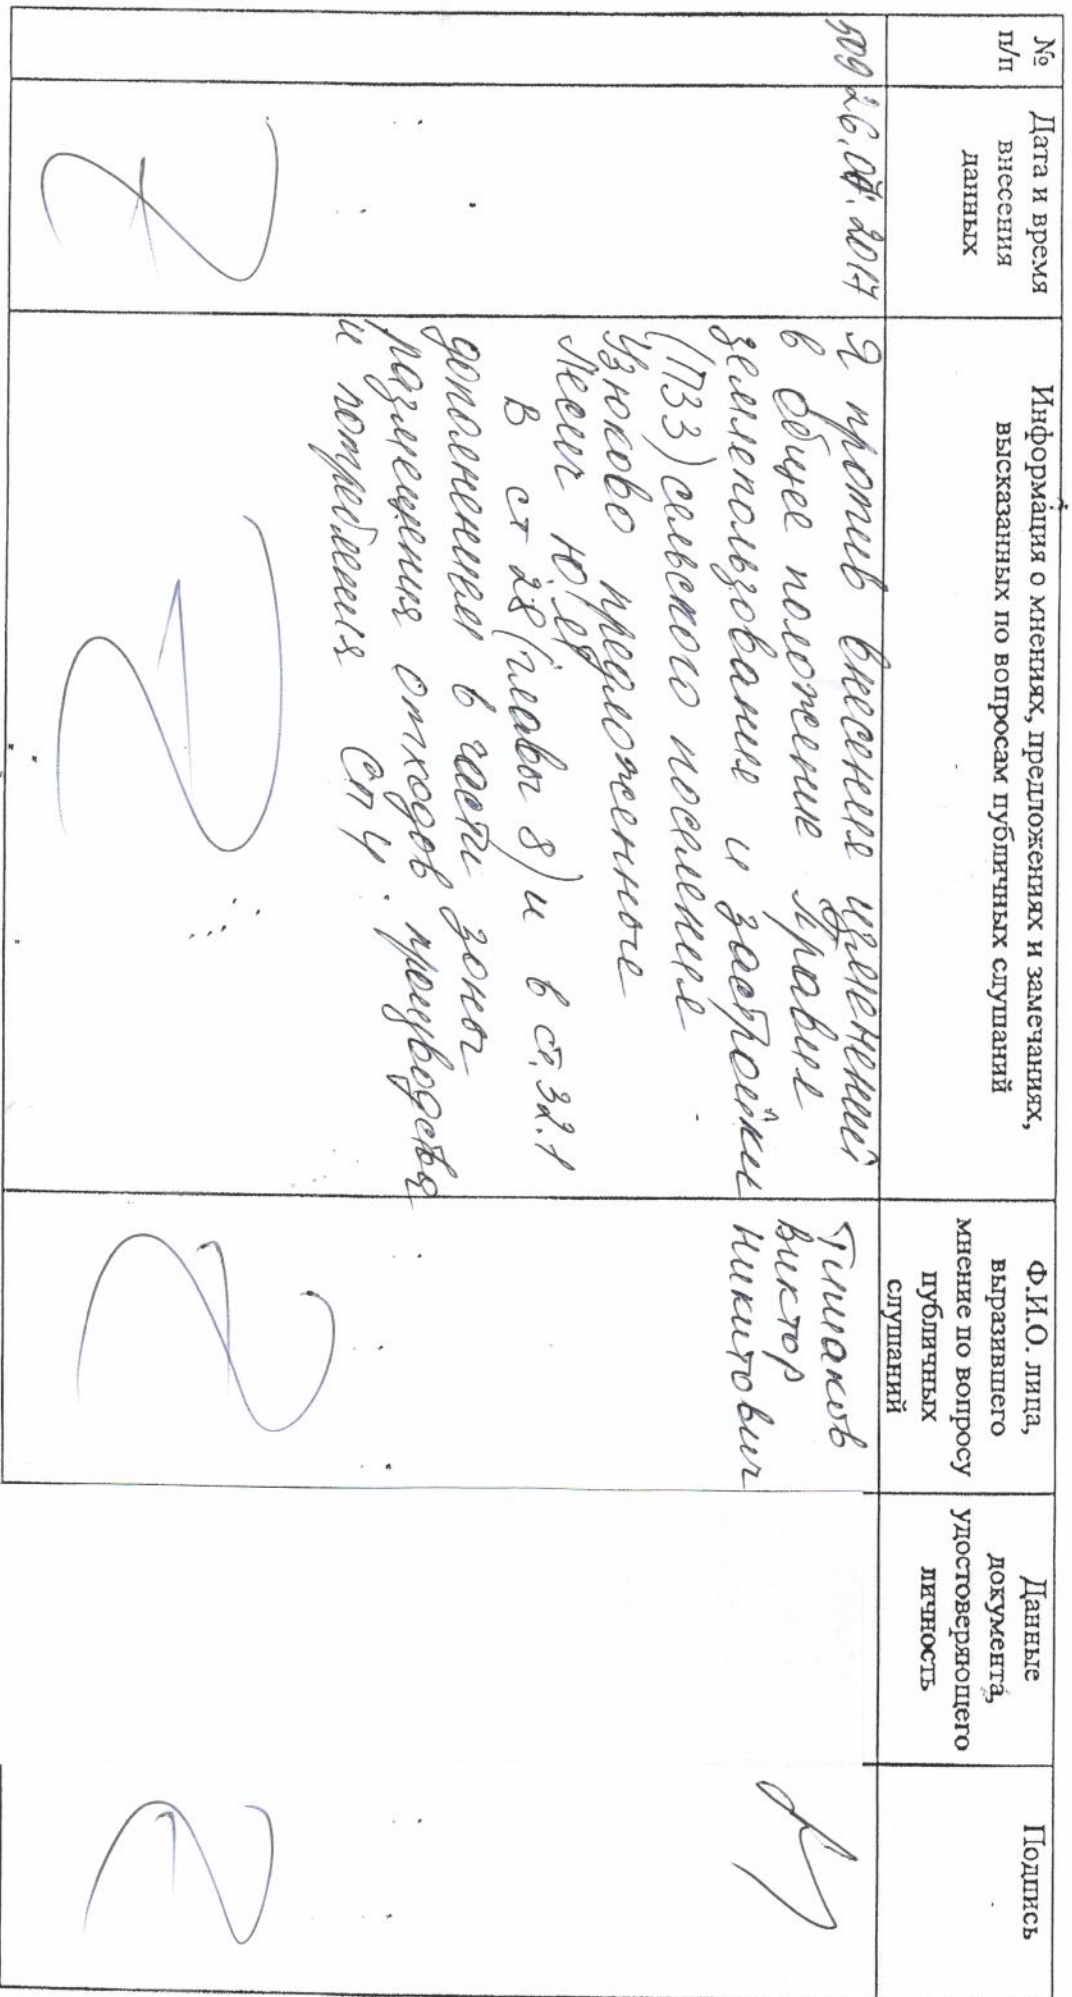 №
п/п
Дата и время
внесения
данных
Информация о мнениях, предложениях и замечаниях,
высказанных по вопросам публичных слушаний
Ф.И.О. лица,
выразившего
мнение по вопросу
публичных
слушаний
Данные
документа,
удостоверяющего
личность
Подпись
509
26.07.2017
Я против внесения изменений
в общее положение Правил
землепользования и застройки
(ПЗЗ) сельского поселения
Узюково предложенные
В ст 28 (главы 8) и в ст. 32.1
дополнения в части зоны
размещения отходов производства
и потребления СП 4.
Виктор
Никитович